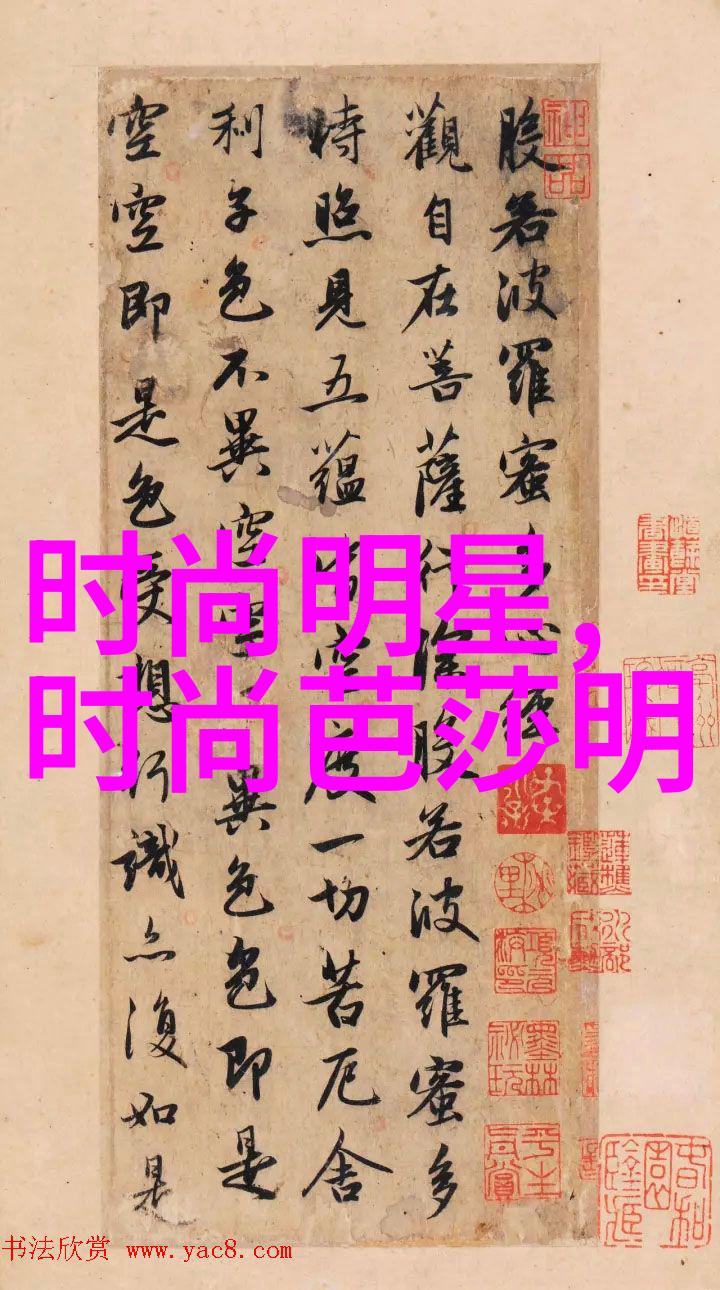 般若波羅蜜多心經
觀自在菩薩行深般若波羅蜜多
時照見五蘊皆空度一切苦厄舍
利子色不異空空不異色色即是
空空即是色受想行識亦復如是
时尚明星,
时尚芭莎明
神品
墨林祕玩
书法欣赏 www.yac8.com